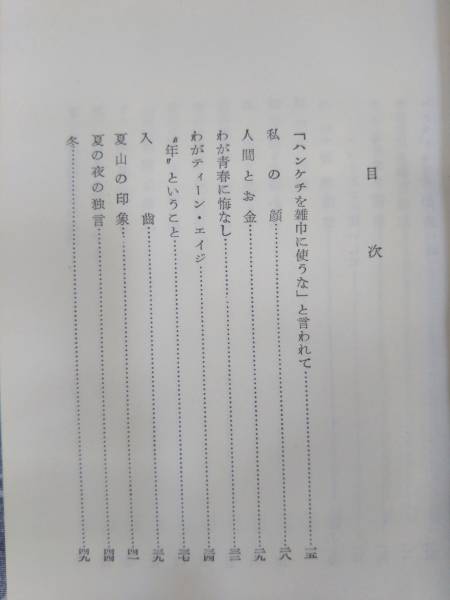 目次
「ハンケチを雑巾に使うな」と言われて……一五
私の顔……二八
人間とお金……二九
わが青春に悔なし……三二
わがティーン・エイジ……三四
“年”ということ……三七
入歯……三九
夏山の印象……四一
夏の夜の独言……四四
冬……四九